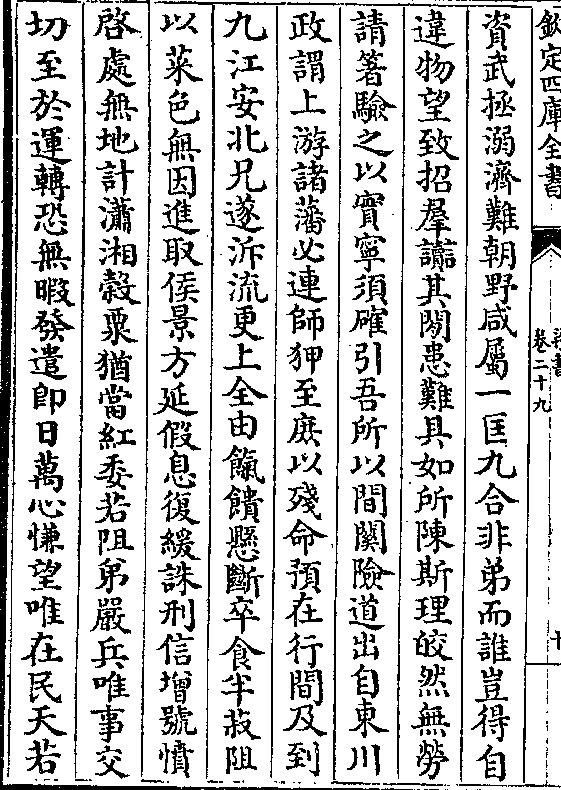 欽定四庫全書
卷二十九
資武拯溺濟難朝野咸屬一匡九合非弟而誰豈得自
違物望致招羣讟其閱患難具如所陳斯理皎然無勞
請箸驗之以實寧須確引吾所以間關險道出自東川
政謂上游諸藩必連師狎至庶以殘命預在行間及到
九江安北兄遂泝流更上全由餼饋懸斷卒食半菽阻
以菜色無因進取侯景方延假息復緩誅刑信增號憤
啓處無地計瀟湘穀粟猶當紅委若阻弟嚴兵唯事交
切至於運轉恐無暇發遣即日萬心慊望唯在民天若